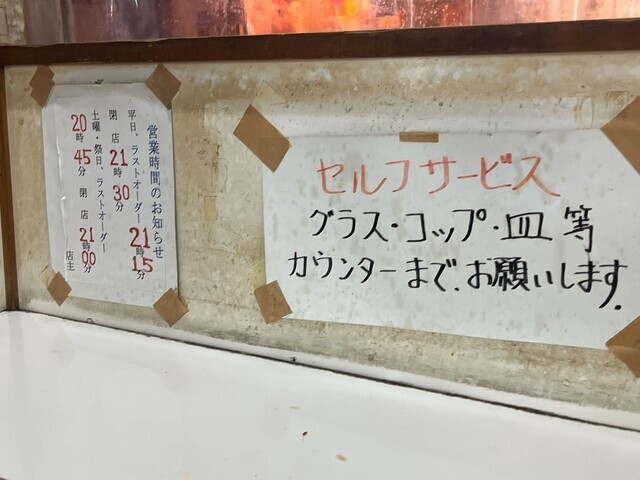 営業時間のお知らせ
平日、ラストオーダー21時15分
閉店21時30分
土曜・祭日、ラストオーダー
20時45分 閉店21時00分
店主
セルフサービス
グラス・コップ・皿等
カウンターまで、お願いします。